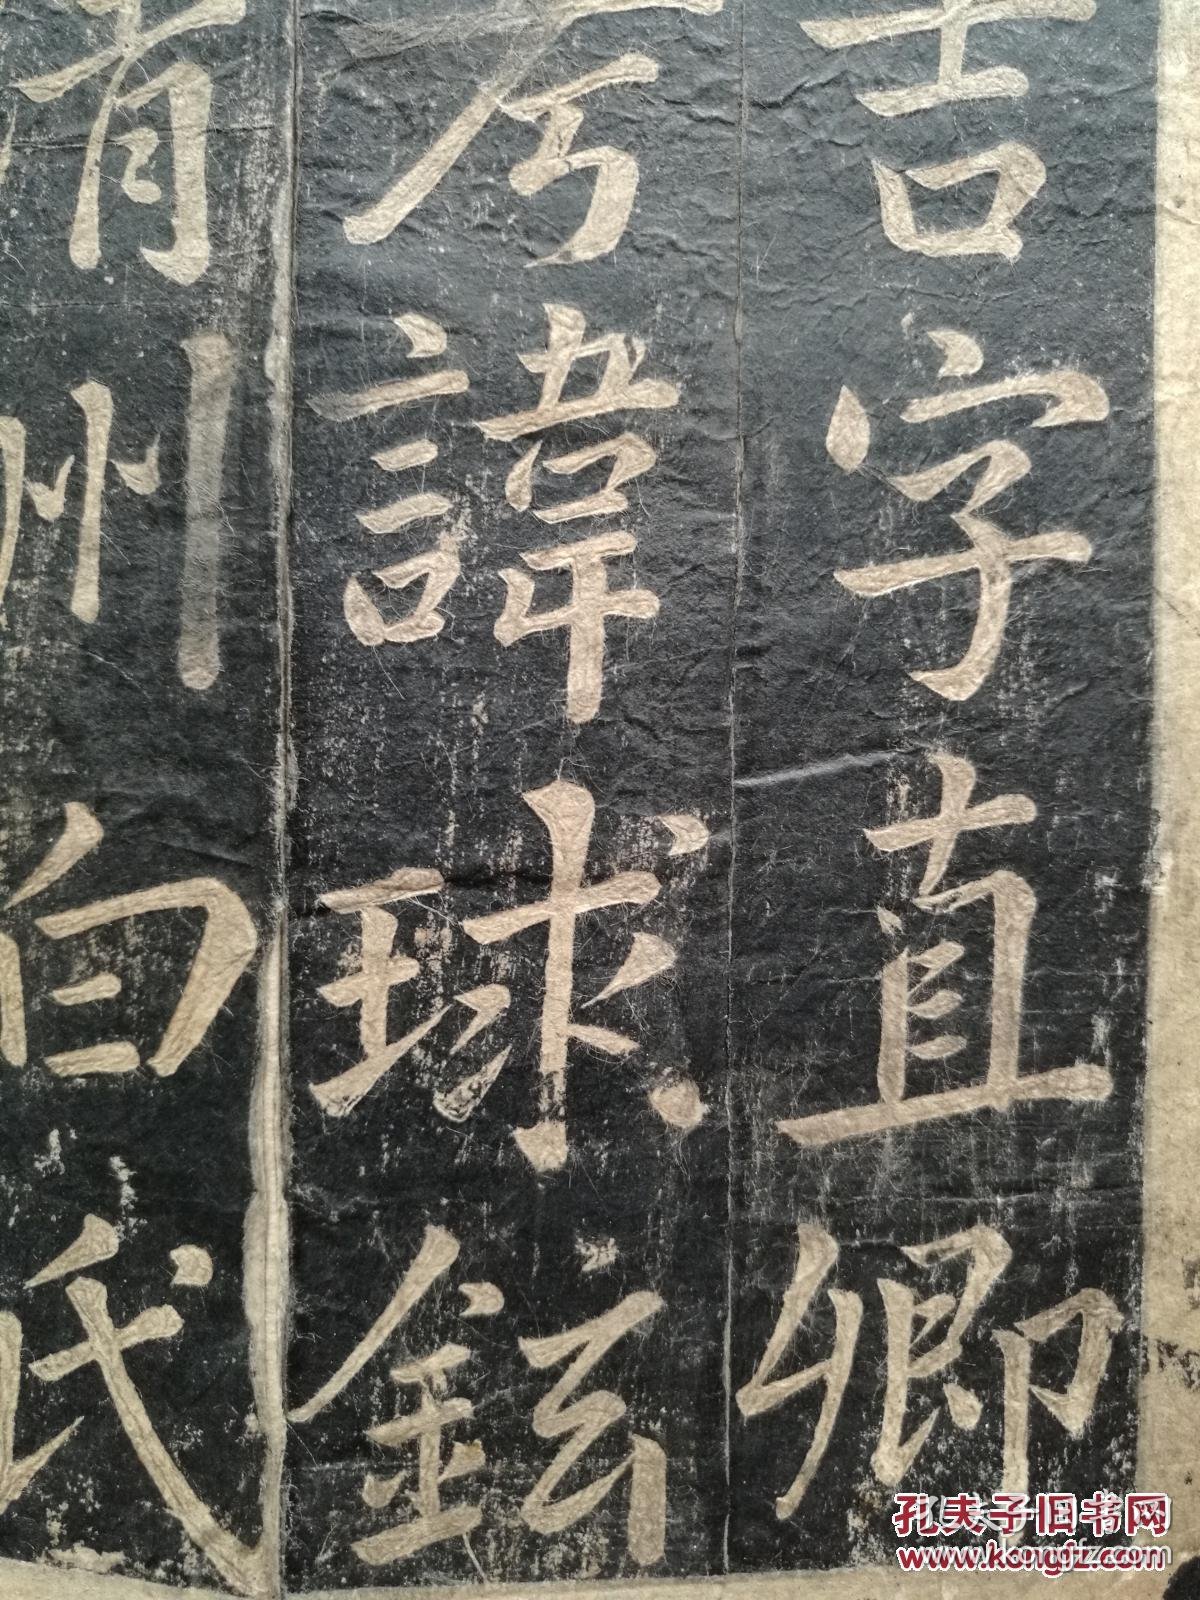 吉字直卿
考諱球鉉
州白氏
孔夫子旧书网
www.kongfz.com